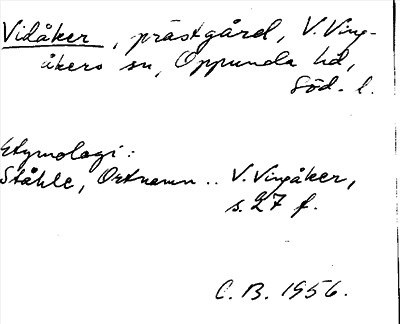 Vidåker, prästgård, V. Ving-
åkers sn, Oppunda hd,
Söd. l.
Etymologi:
Ståhle, Ortnamn .. V. Vingåker,
s. 27 f.
C. B. 1956.